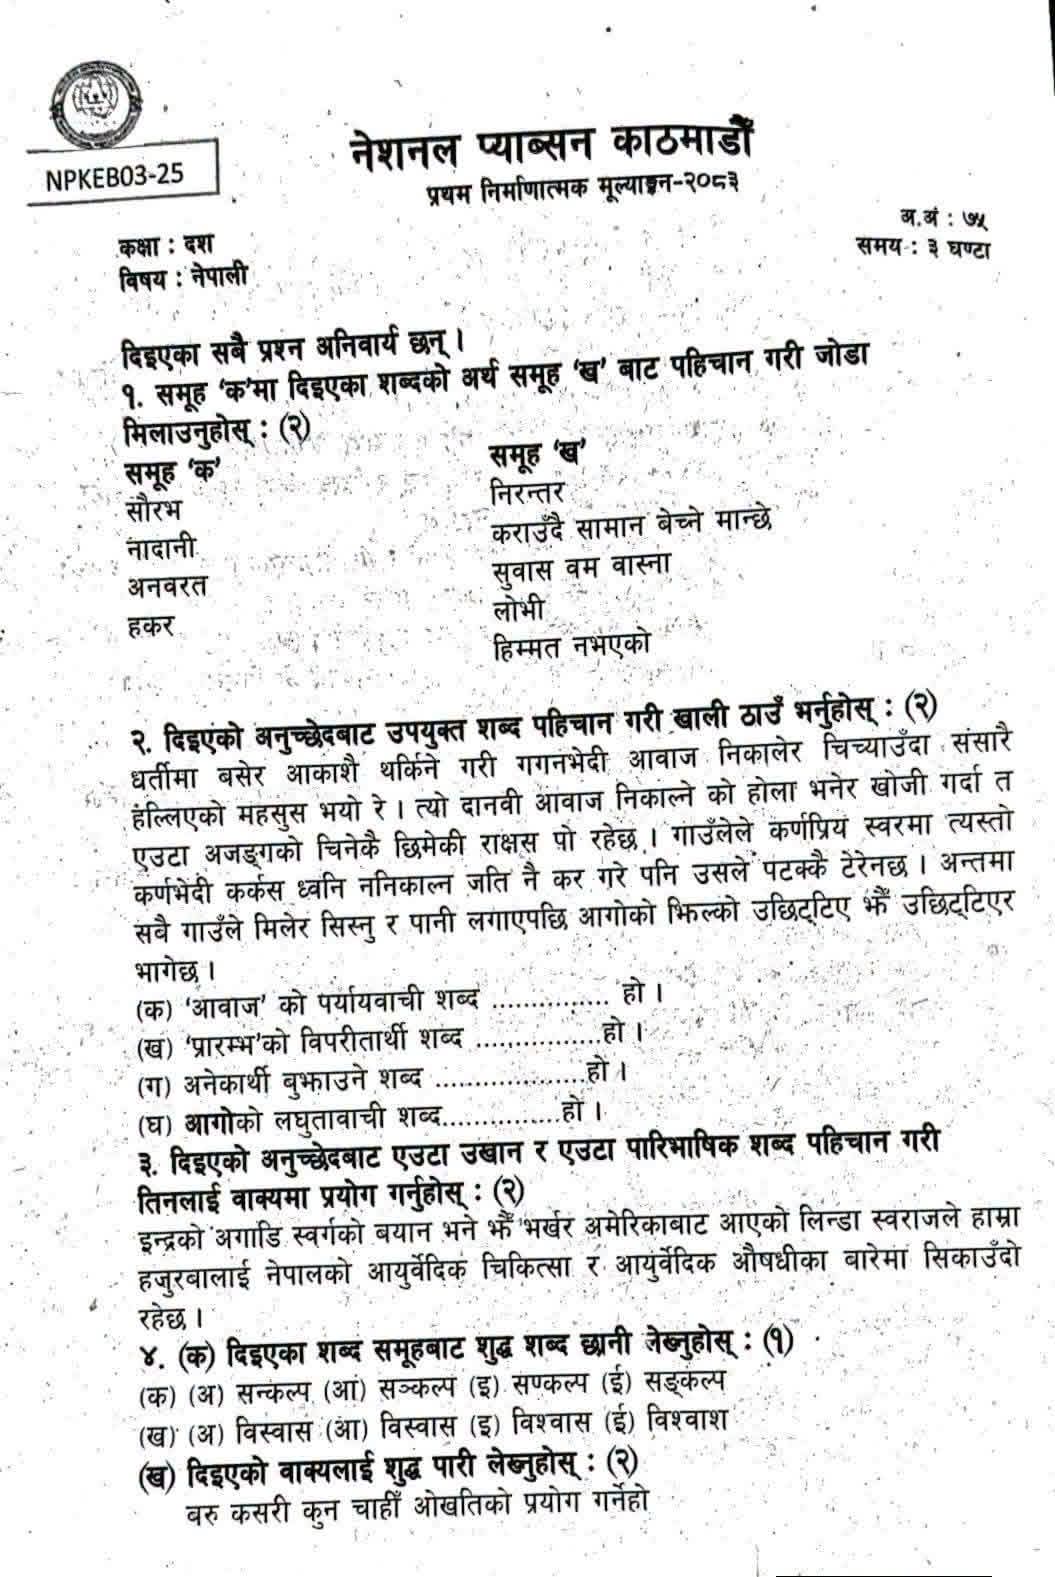 NPKEB03-25
नेशनल प्याब्सन काठमाडौँ
प्रथम निर्माणात्मक मूल्याङ्कन-२०८३
अ.अं : ७५
कक्षा : दश
समय : ३ घण्टा
विषय : नेपाली
दिइएका सबै प्रश्न अनिवार्य छन् ।
१. समूह ‘क’मा दिइएका शब्दको अर्थ समूह ‘ख’ बाट पहिचान गरी जोडा
मिलाउनुहोस् : (२)
समूह ‘क’ समूह ‘ख’
सौरभ निरन्तर
नादानी कराउँदै सामान बेच्ने मान्छे
अनवरत सुवास वम वास्ना
हकर लोभी
हिम्मत नभएको
२. दिइएको अनुच्छेदबाट उपयुक्त शब्द पहिचान गरी खाली ठाउँ भर्नुहोस् : (२)
धर्तीमा बसेर आकाशै थर्किने गरी गगनभेदी आवाज निकालेर चिच्याउँदा संसारै
हल्लिएको महसुस भयो रे । त्यो दानवी आवाज निकाल्ने को होला भनेर खोजी गर्दा त
एउटा अजङ्गको चिनेकै छिमेकी राक्षस पो रहेछ । गाउँलेले कर्णप्रिय स्वरमा त्यस्तो
कर्णभेदी कर्कस ध्वनि ननिकाल्न जति नै कर गरे पनि उसले पटक्कै टेरेनछ । अन्तमा
सबै गाउँले मिलेर सिस्नु र पानी लगाएपछि आगोको झिल्को उछिट्टिए झैँ उछिट्टिएर
भागेछ ।
(क) ‘आवाज’ को पर्यायवाची शब्द ............... हो ।
(ख) ‘प्रारम्भ’को विपरीतार्थी शब्द .................हो ।
(ग) अनेकार्थी बुझाउने शब्द ....................हो ।
(घ) आगोको लघुतावाची शब्द................हो ।
३. दिइएको अनुच्छेदबाट एउटा उखान र एउटा पारिभाषिक शब्द पहिचान गरी
तिनलाई वाक्यमा प्रयोग गर्नुहोस् : (२)
इन्द्रको अगाडि स्वर्गको बयान भने झैँ भर्खर अमेरिकाबाट आएको लिन्डा स्वराजले हाम्रा
हजुरबालाई नेपालको आयुर्वेदिक चिकित्सा र आयुर्वेदिक औषधीका बारेमा सिकाउँदो
रहेछ ।
४. (क) दिइएका शब्द समूहबाट शुद्ध शब्द छानी लेख्नुहोस् : (१)
(क) (अ) सन्कल्प (आ) सञ्कल्प (इ) सण्कल्प (ई) सङ्कल्प
(ख) (अ) विस्वास (आ) विस्वास (इ) विश्वास (ई) विश्वाश
(ख) दिइएको वाक्यलाई शुद्ध पारी लेख्नुहोस् : (२)
बरु कसरी कुन चाहीँ ओखतिको प्रयोग गर्नेहो